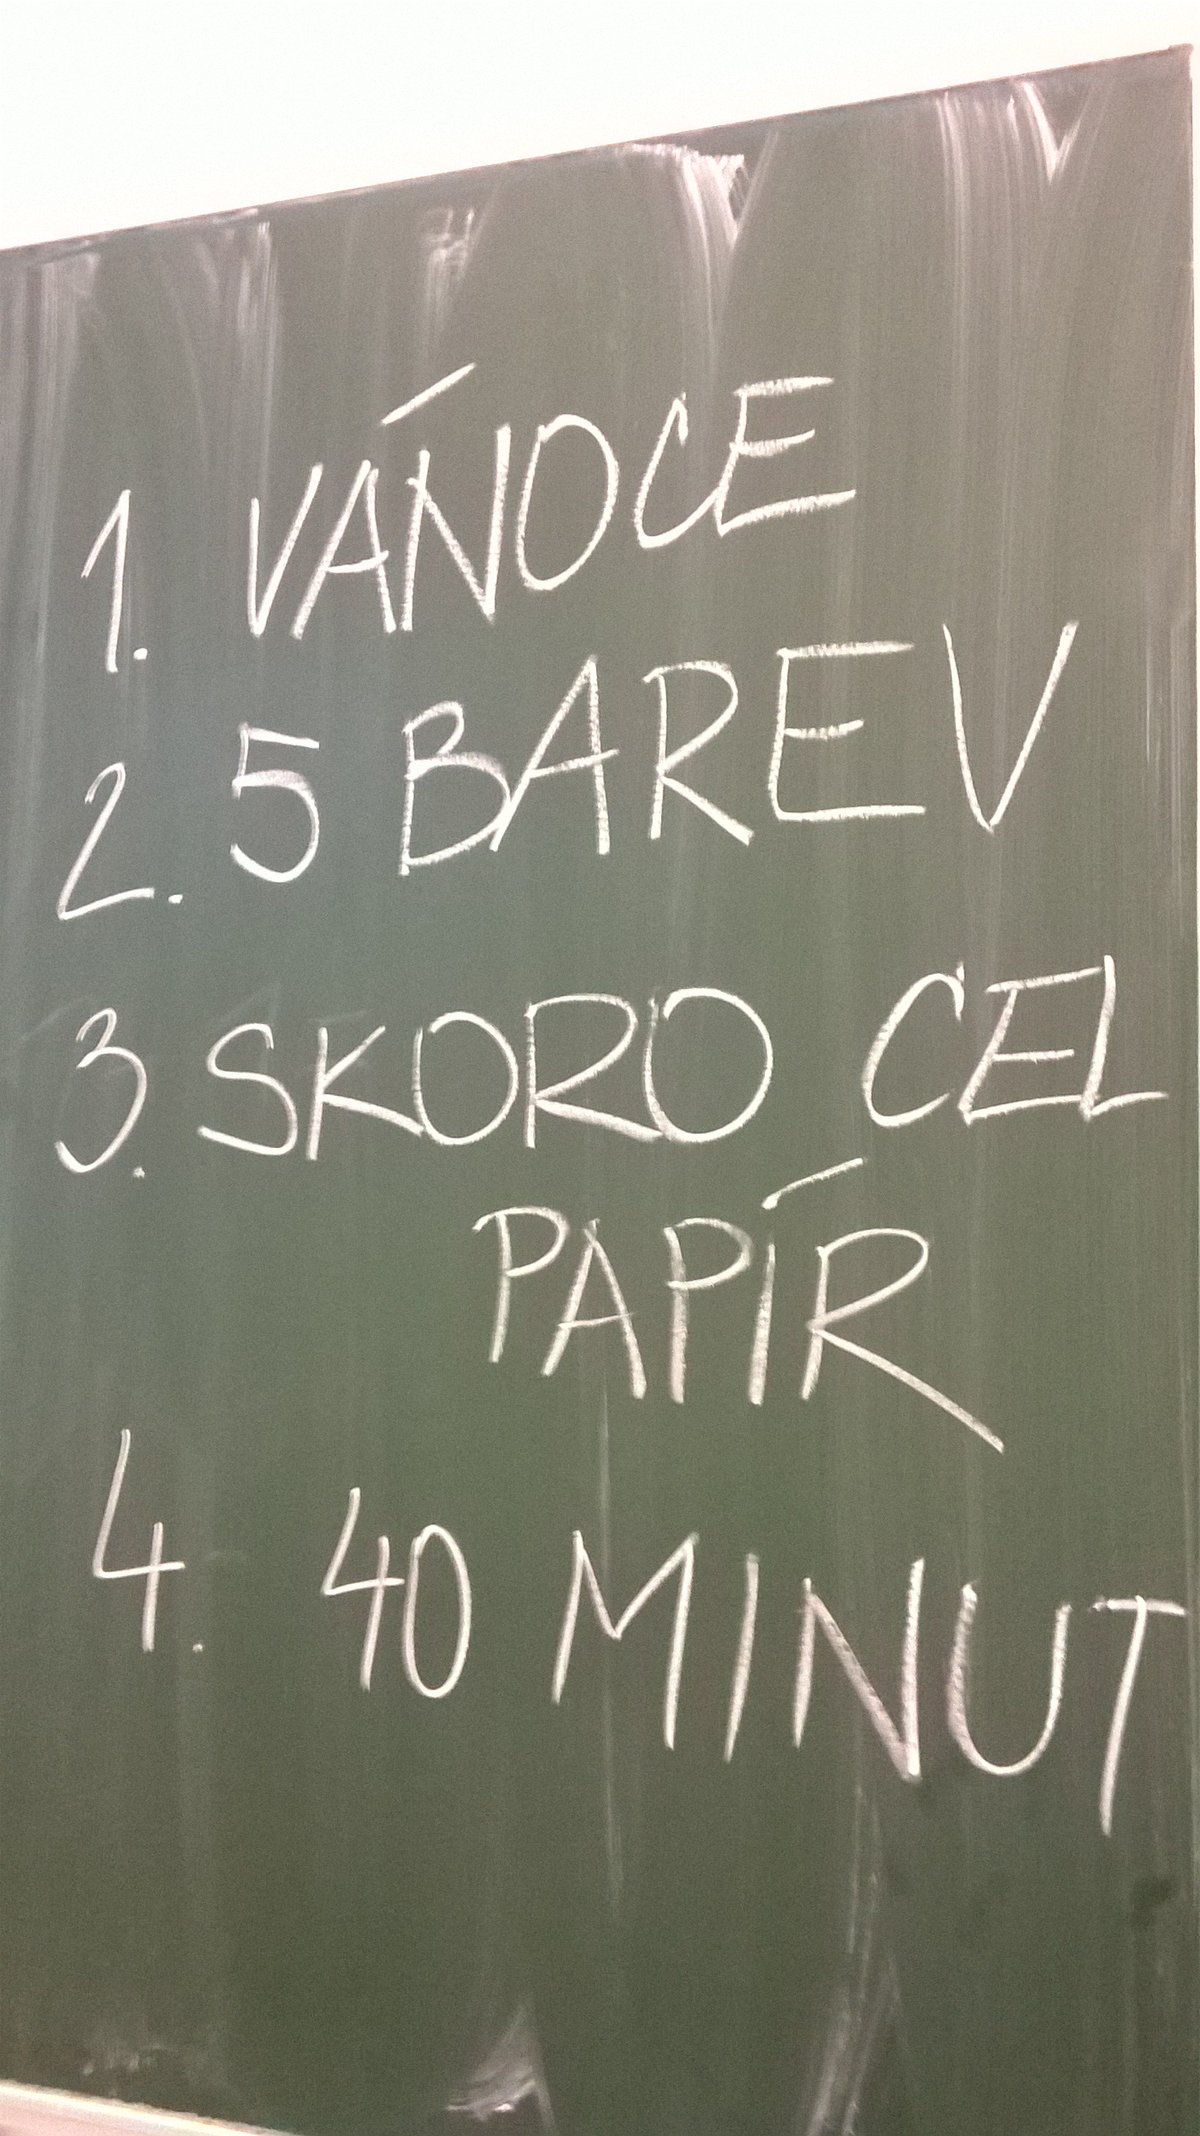 1. VÁNOCE
2. 5 BAREV
3. SKORO CEL
PAPÍR
4. 40 MINUT